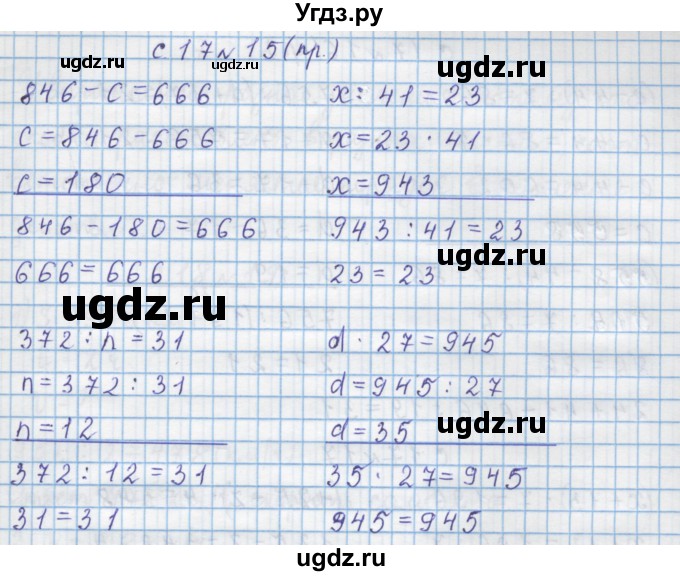 Угдз.ру
с 17 № 15(пр.)
ugdz.ru ugdz.ru ugdz.ru
846 - с = 666
с = 846 - 666
с = 180
846 - 180 = 666
666 = 666
x : 41 = 23
x = 23 · 41
x = 943
943 : 41 = 23
23 = 23
ugdz.ru ugdz.ru
372 : n = 31
n = 372 : 31
n = 12
372 : 12 = 31
31 = 31
d · 27 = 945
d = 945 : 27
d = 35
35 · 27 = 945
945 = 945
ugdz.ru
ugdz.ru